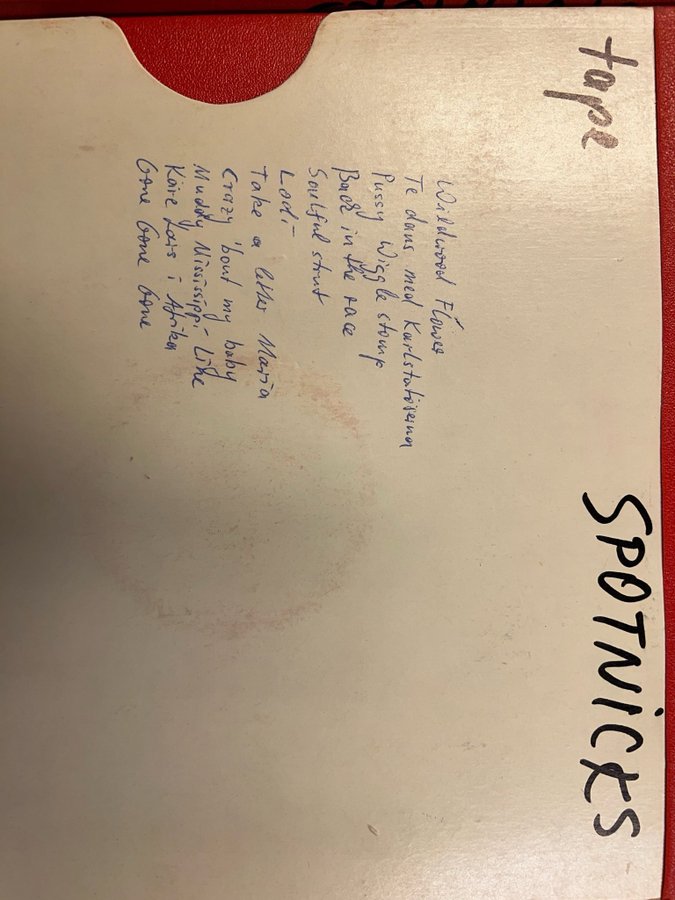 tape SPOTNICKS
Wildwood Flower
Te dans med Karlstatöserna
Pussy Wiggle stomp
Back in the race
Soulful strut
Lodi
Take a letter Maria
Crazy 'bout my baby
Muddy Mississippi Line
Käre Lars i Afrika
Gone Gone Gone